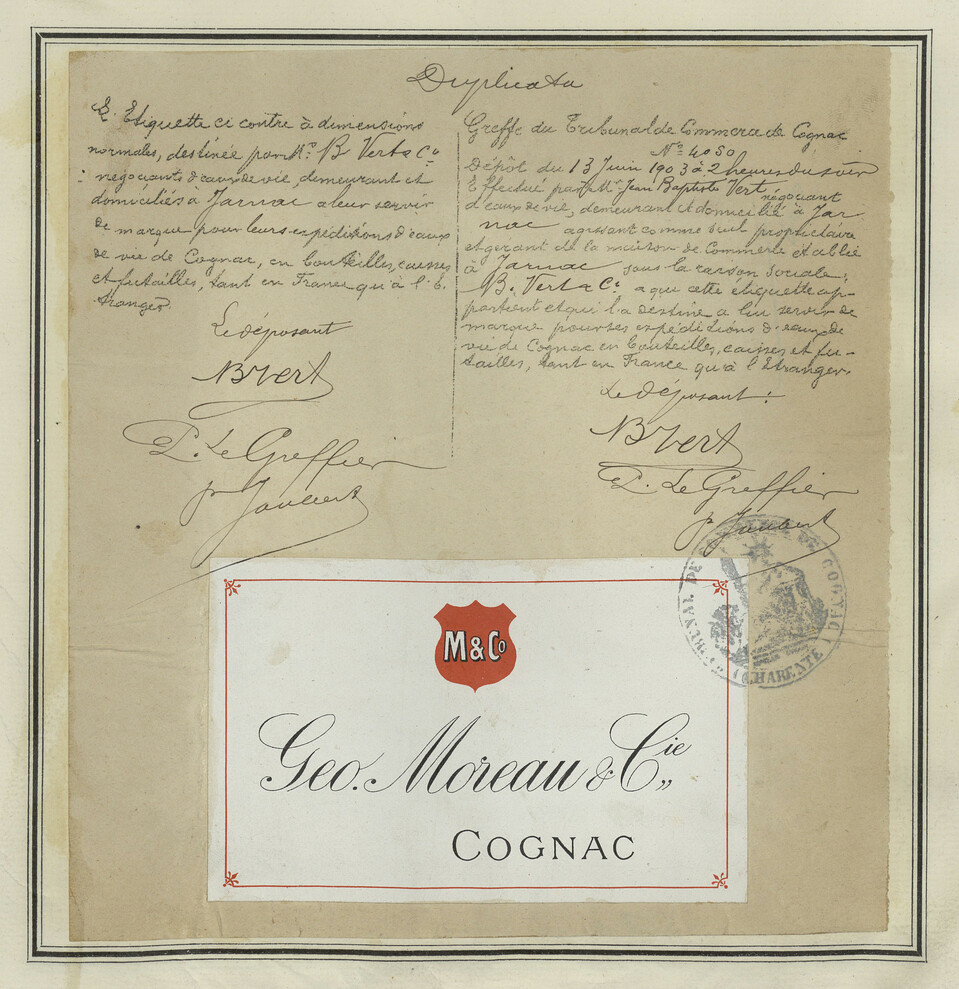 Duplicata
L'Etiquette ci contre à dimensions
normales, destinée par Mrs B Vert & Co
négociants d'eaux de vie, demeurant et
domiciliés à Jarnac a leur servir
de marque pour leurs expéditions d'eaux
de vie de Cognac, en bouteilles, caisses
et futailles, tant en France qu'à l'é-
tranger.
Le déposant
B Vert
P. Le Greffier
p Jaubert
Greffe du Tribunal de Commerce de Cognac
No 4050
Dépôt du 13 Juin 1903 à 2 heures du soir
Effectué par M. Jean Baptiste Vert négociant
d'eaux de vie, demeurant et domicilié à Jar
nac agissant comme seul propriétaire
et gérant de la maison de Commerce établie
à Jarnac sous la raison sociale:
B. Vert & Co a qui cette étiquette ap-
partient et qui l'a destine a lui servir de
marque pour ses expéditions d'eaux de
vie de Cognac en bouteilles, caisses et fu-
tailles, tant en France qu'à l'Etranger.
Le déposant:
B Vert
P. Le Greffier
p Jaubert
TRIBUNAL DE COMMERCE DE COGNAC
(CHARENTE)
M & Co
Geo. Moreau & Cie
COGNAC